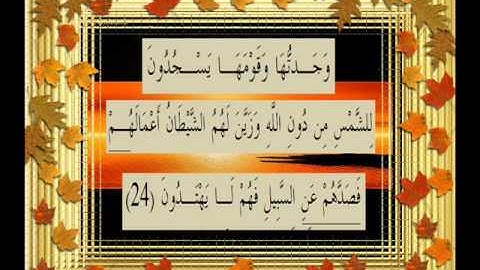 وَجَدتُّهَا وَقَوْمَهَا يَسْجُدُونَ
لِلشَّمْسِ مِن دُونِ اللَّهِ وَزَيَّنَ لَهُمُ الشَّيْطَانُ أَعْمَالَهُمْ
فَصَدَّهُمْ عَنِ السَّبِيلِ فَهُمْ لَا يَهْتَدُونَ (24)